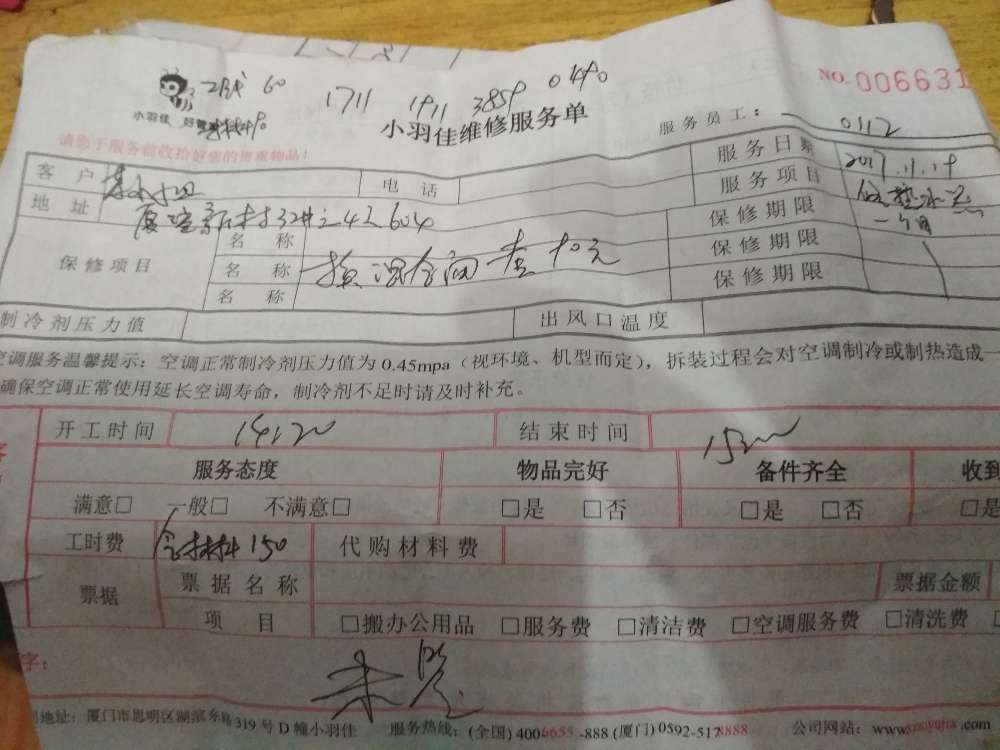 60
1711 1911 3859 0490
NO. 006631
小羽佳
小羽佳维修服务单
服务员工: 0112
请您于服务前收拾好您的贵重物品!
客户 电话 服务日期 2017.11.19
地址 604 服务项目 修热水器
保修项目 名称 保修期限 一个月
名称 换混合阀一套 90元 保修期限
名称 保修期限
制冷剂压力值 出风口温度
空调服务温馨提示: 空调正常制冷剂压力值为0.45mpa(视环境、机型而定), 拆装过程会对空调制冷或制热造成一
确保空调正常使用延长空调寿命, 制冷剂不足时请及时补充。
开工时间 14:20 结束时间
服务态度 物品完好 备件齐全 收到
满意□ 一般□ 不满意□ □是 □否 □是 □否 □是
工时费 含材料150 代购材料费
票据 票据名称 票据金额
项目 □搬办公用品 □服务费 □清洁费 □空调服务费 □清洗费
字:
地址: 厦门市思明区湖滨东路319号D幢小羽佳 服务热线: (全国) 4006655-888 (厦门) 0592-5178888 公司网站: www.xiaoyujia.com